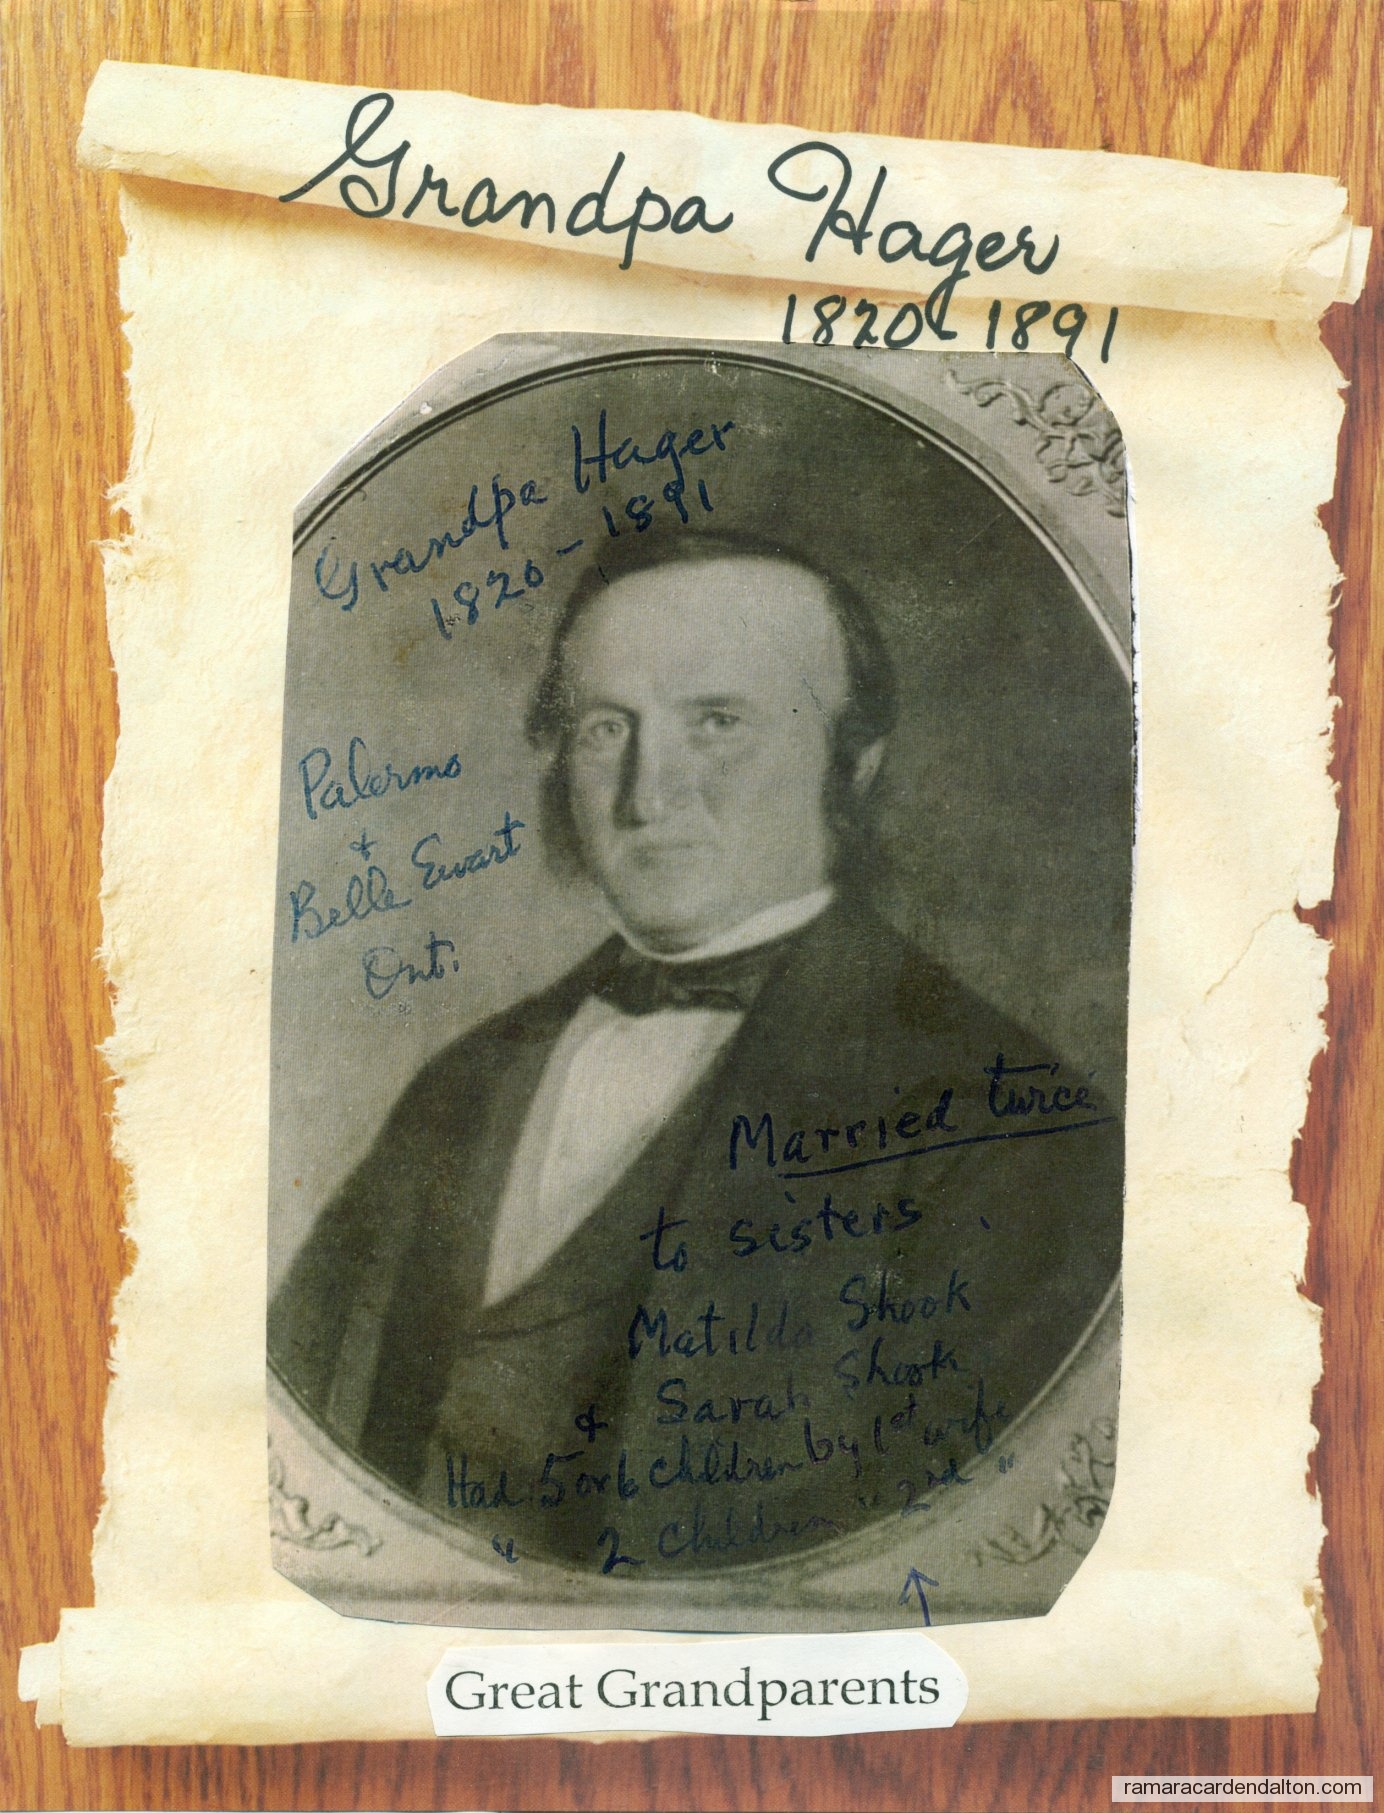 Grandpa Hager
1820 - 1891
Grandpa Hager
1820 - 1891
Palermo
&
Belle Ewart
Ont.
Married twice
to sisters.
Matilda Shook
& Sarah Shook
Had 5 or 6 children by 1st wife
" 2 children " 2nd "
↑
Great Grandparents
ramaracardendalton.com